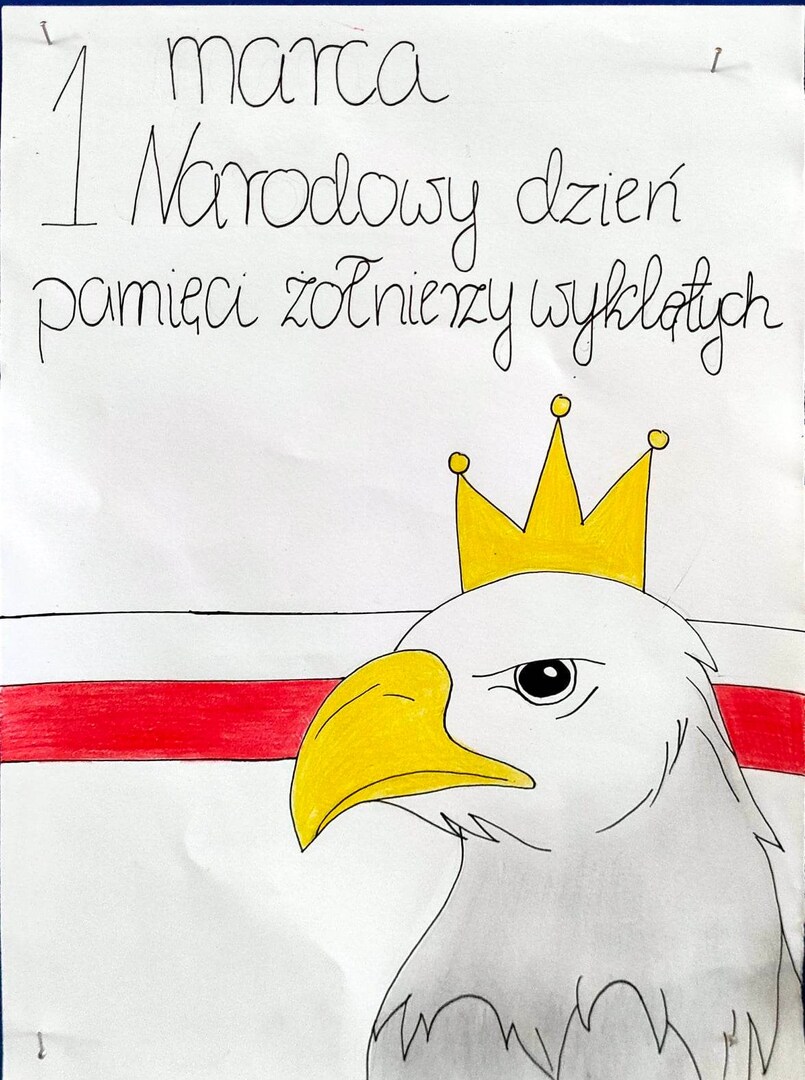 1 marca
Narodowy dzień
pamięci żołnierzy wyklętych